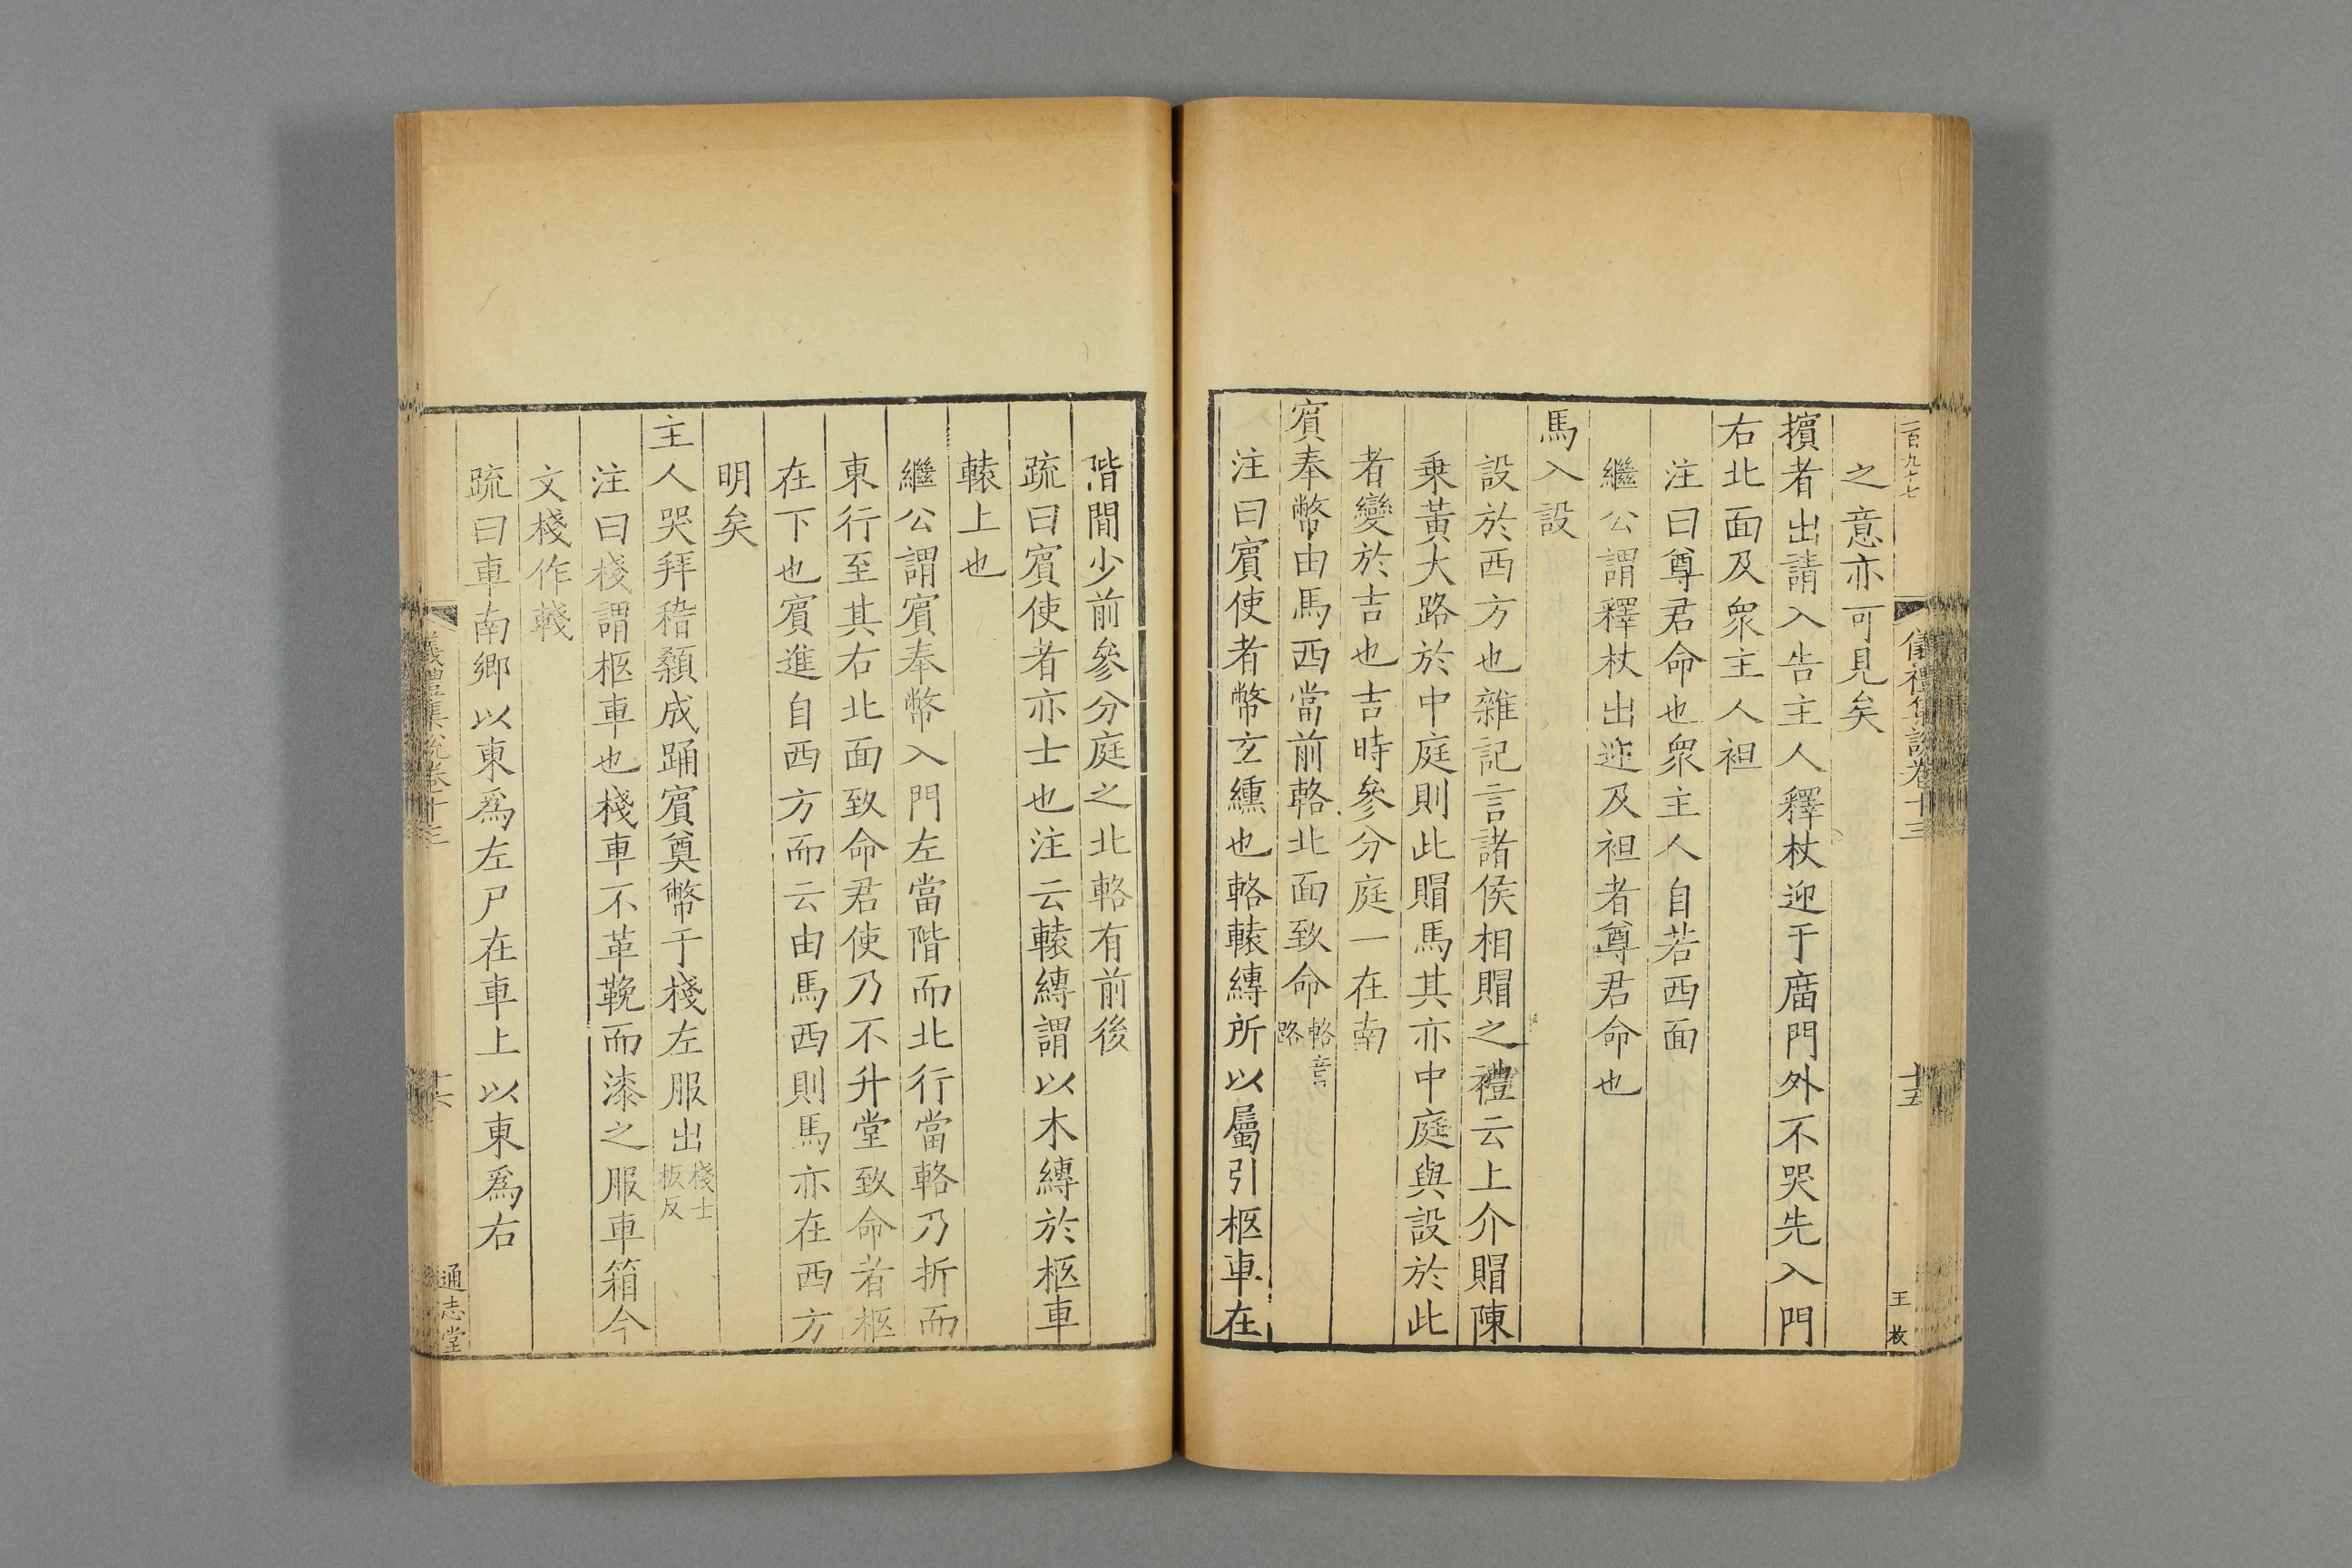 一百九十七
儀禮集說卷十三
十五
王 枚
之意亦可見矣
擯者出請入告主人釋杖迎于廟門外不哭先入門
右北面及衆主人袒
注曰尊君命也衆主人自若西面
繼公謂釋杖出迎及袒者尊君命也
馬入設
設於西方也雜記言諸侯相賵之禮云上介賵陳
乗黃大路於中庭則此賵馬其亦中庭與設於此
者變於吉也吉時參分庭一在南
賓奉幣由馬西當前輅北面致命輅音路
注曰賓使者幣玄纁也輅轅縛所以屬引柩車在
階間少前參分庭之北輅有前後
疏曰賓使者亦士也注云轅縛謂以木縛於柩車
轅上也
繼公謂賓奉幣入門左當階而北行當輅乃折而
東行至其右北面致命君使乃不升堂致命者柩
在下也賓進自西方而云由馬西則馬亦在西方
明矣
主人哭拜稽顙成踊賓奠幣于棧左服出棧士板反
注曰棧謂柩車也棧車不革鞔而漆之服車箱今
文棧作輚
疏曰車南鄉以東爲左尸在車上以東爲右
儀禮集說卷十三
十六
通志堂